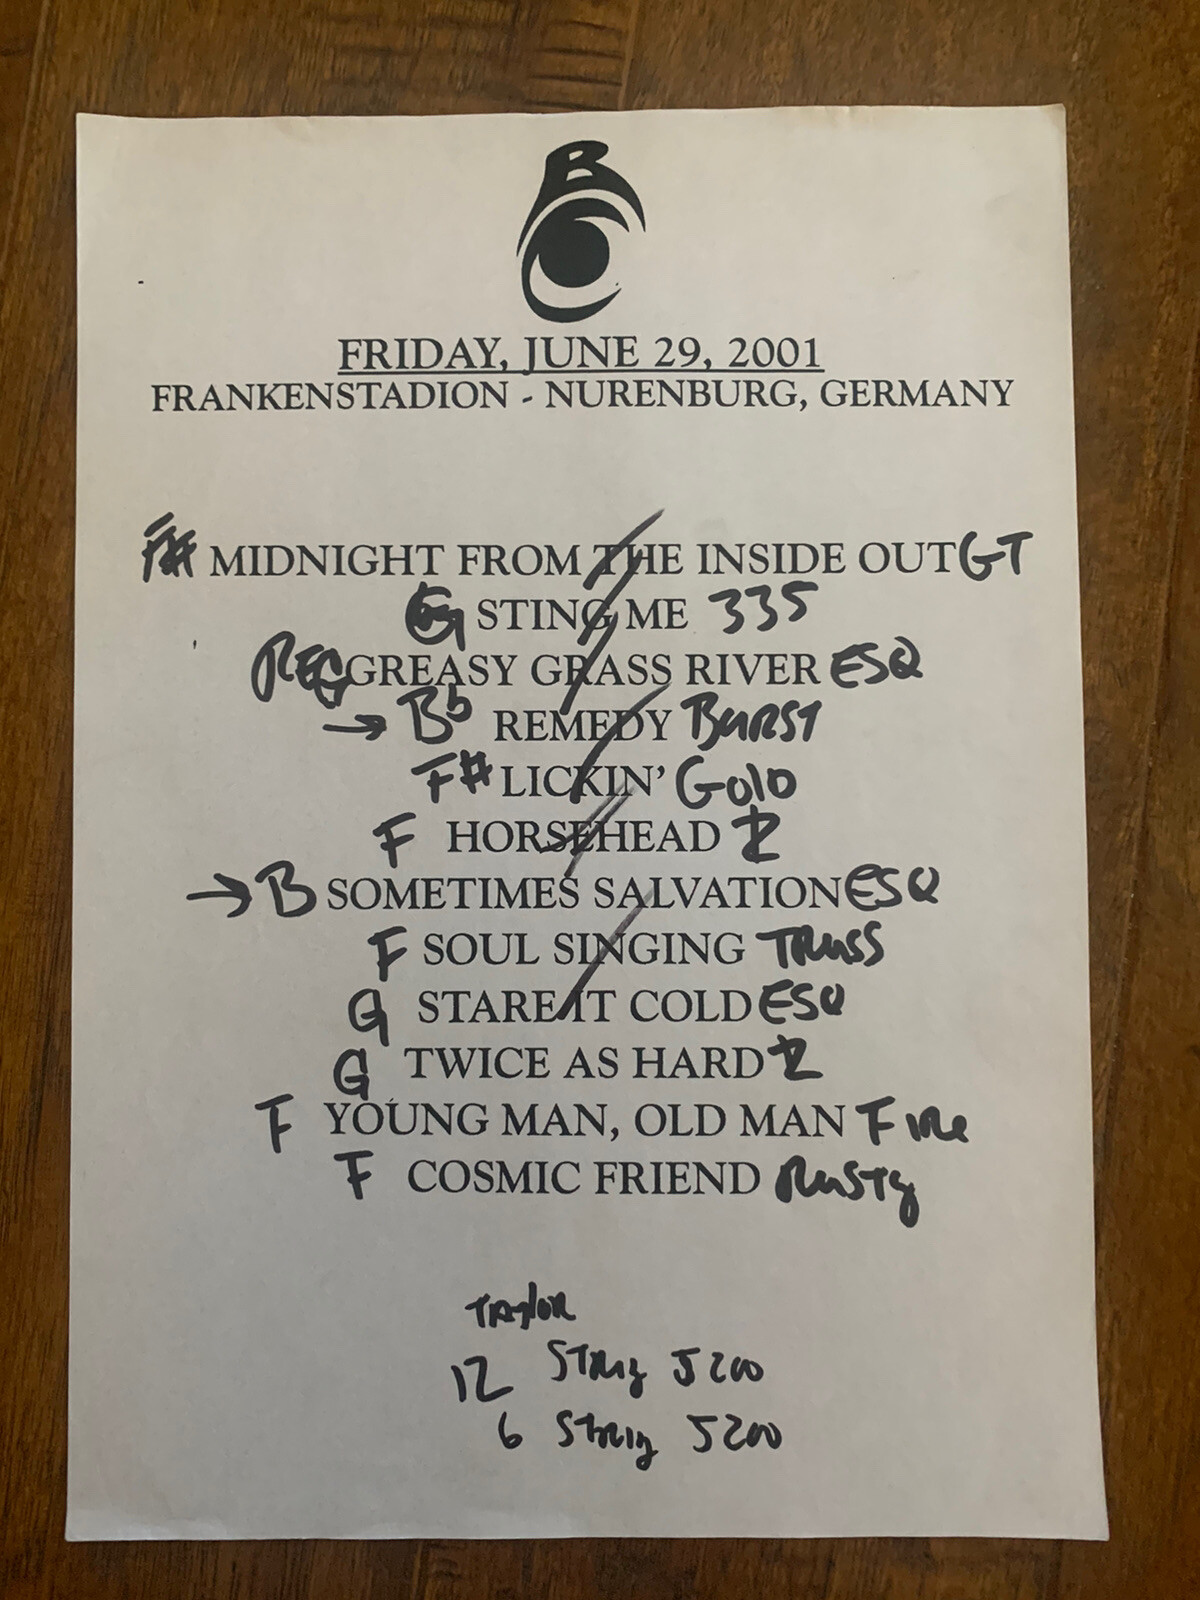 B C
FRIDAY, JUNE 29, 2001
FRANKENSTADION - NURENBURG, GERMANY
F# MIDNIGHT FROM THE INSIDE OUT GT
G STING ME 335
REG GREASY GRASS RIVER ESQ
→ Bb REMEDY BURST
F# LICKIN' GOLD
F HORSEHEAD Z
→ B SOMETIMES SALVATION ESQ
F SOUL SINGING TRUSS
G STARE IT COLD ESQ
G TWICE AS HARD Z
F YOUNG MAN, OLD MAN FIRE
F COSMIC FRIEND RUSTY
TAYLOR
12 STRING J200
6 STRING J200